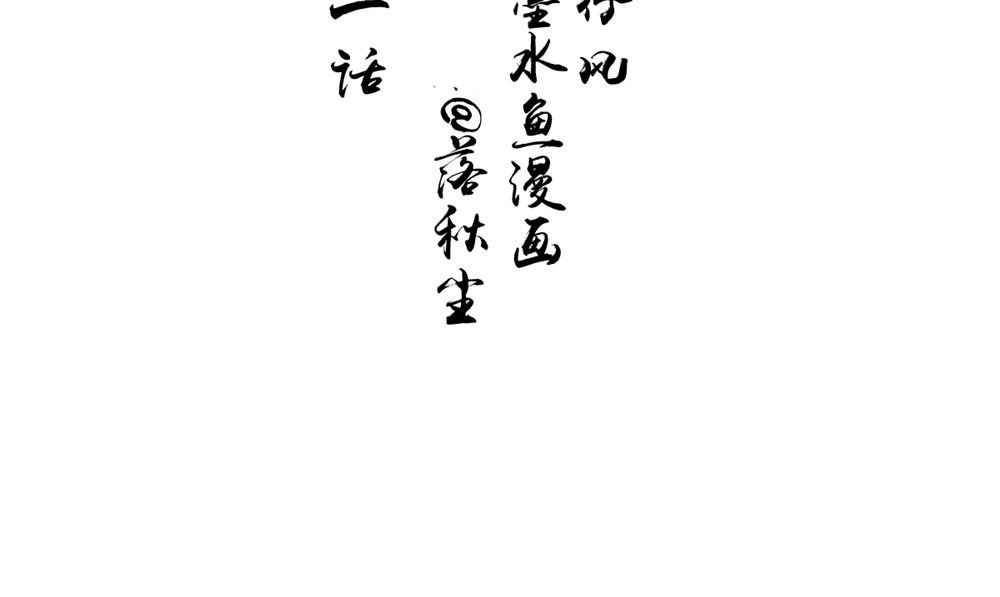 风
墨水鱼漫画
@落秋尘
一话